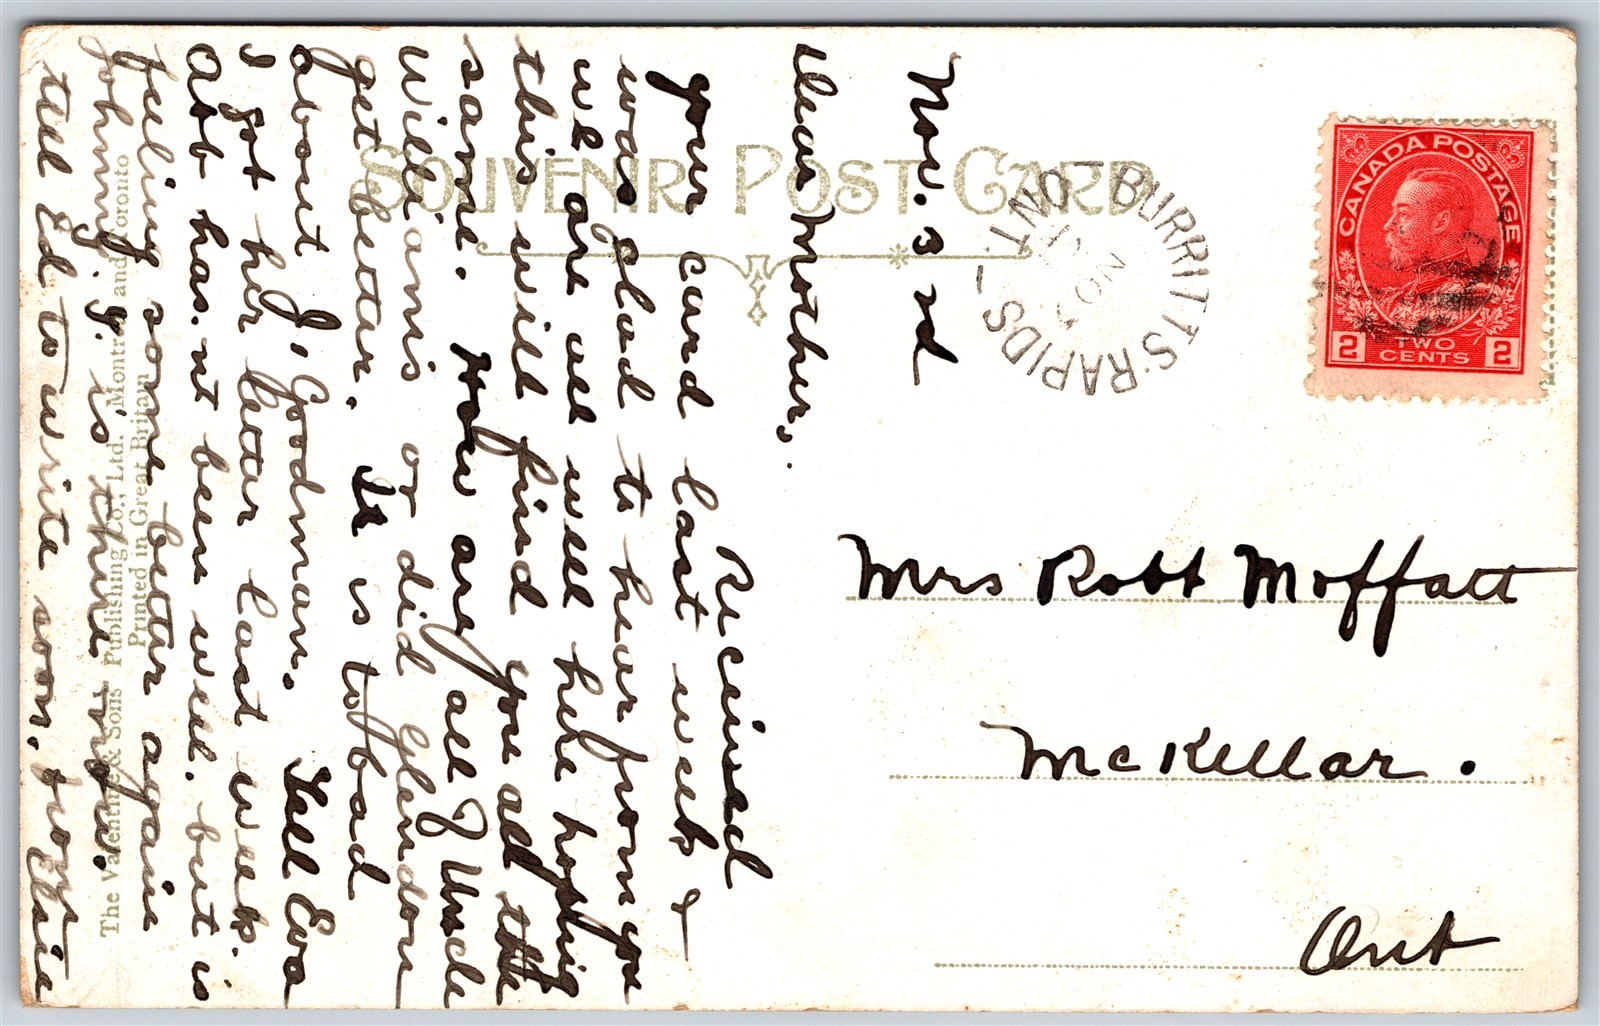 SOUVENIR POST CARD
CANADA POSTAGE
2 TWO CENTS 2
BURRITTS-RAPIDS
ONT.
NO
Nov. 3 rd
Dear Mother.
Recieved
your card last week &
was glad to hear from you
we are all well here hoping
this will find you all the
same. How are all Uncle
Williams or did Glendon
get better. It is to bad
about J. Goodman. Tell Eva
I got her letter last week.
Abb has.nt been well. but is
feeling some better again
Johnny. G. is there
tell Ed to write soon. from Elsie
Mrs Robt Moffatt
McKellar.
Ont
The Valentine & Sons Publishing Co., Ltd. Montreal and Toronto
Printed in Great Britain